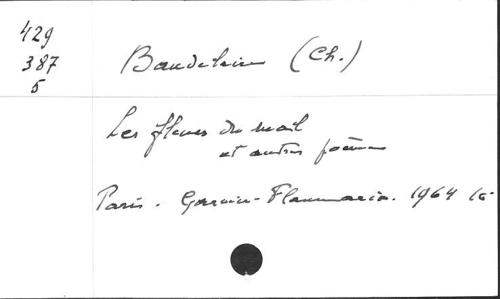 429
387
5
Baudelaire (Ch.)
Les fleurs du mal
et autres poèmes
Paris. Garnier-Flammarion. 1964